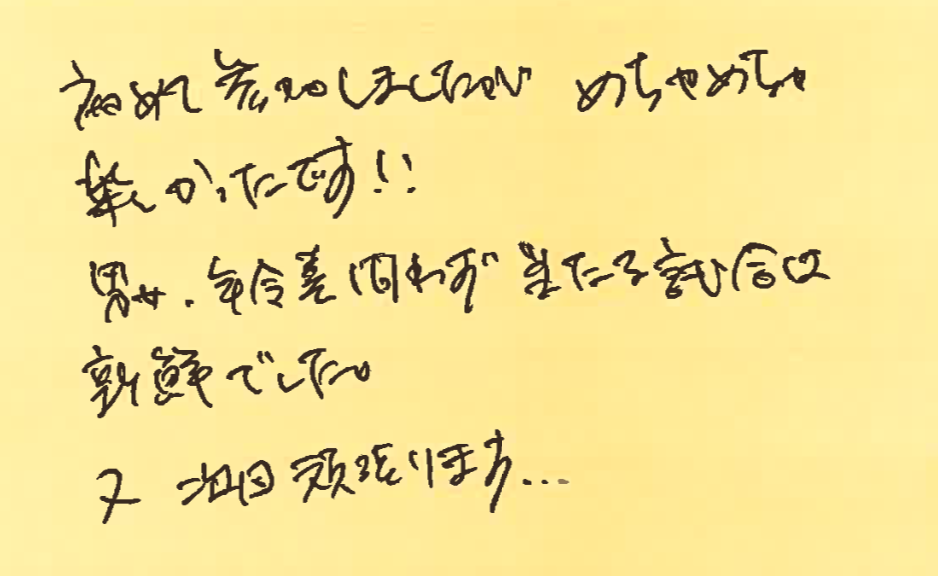 初めて参加しましたが めちゃめちゃ
楽しかったです!!
男女．年令差問わず 当たる試合は
新鮮でした。
又 次回頑張ります...